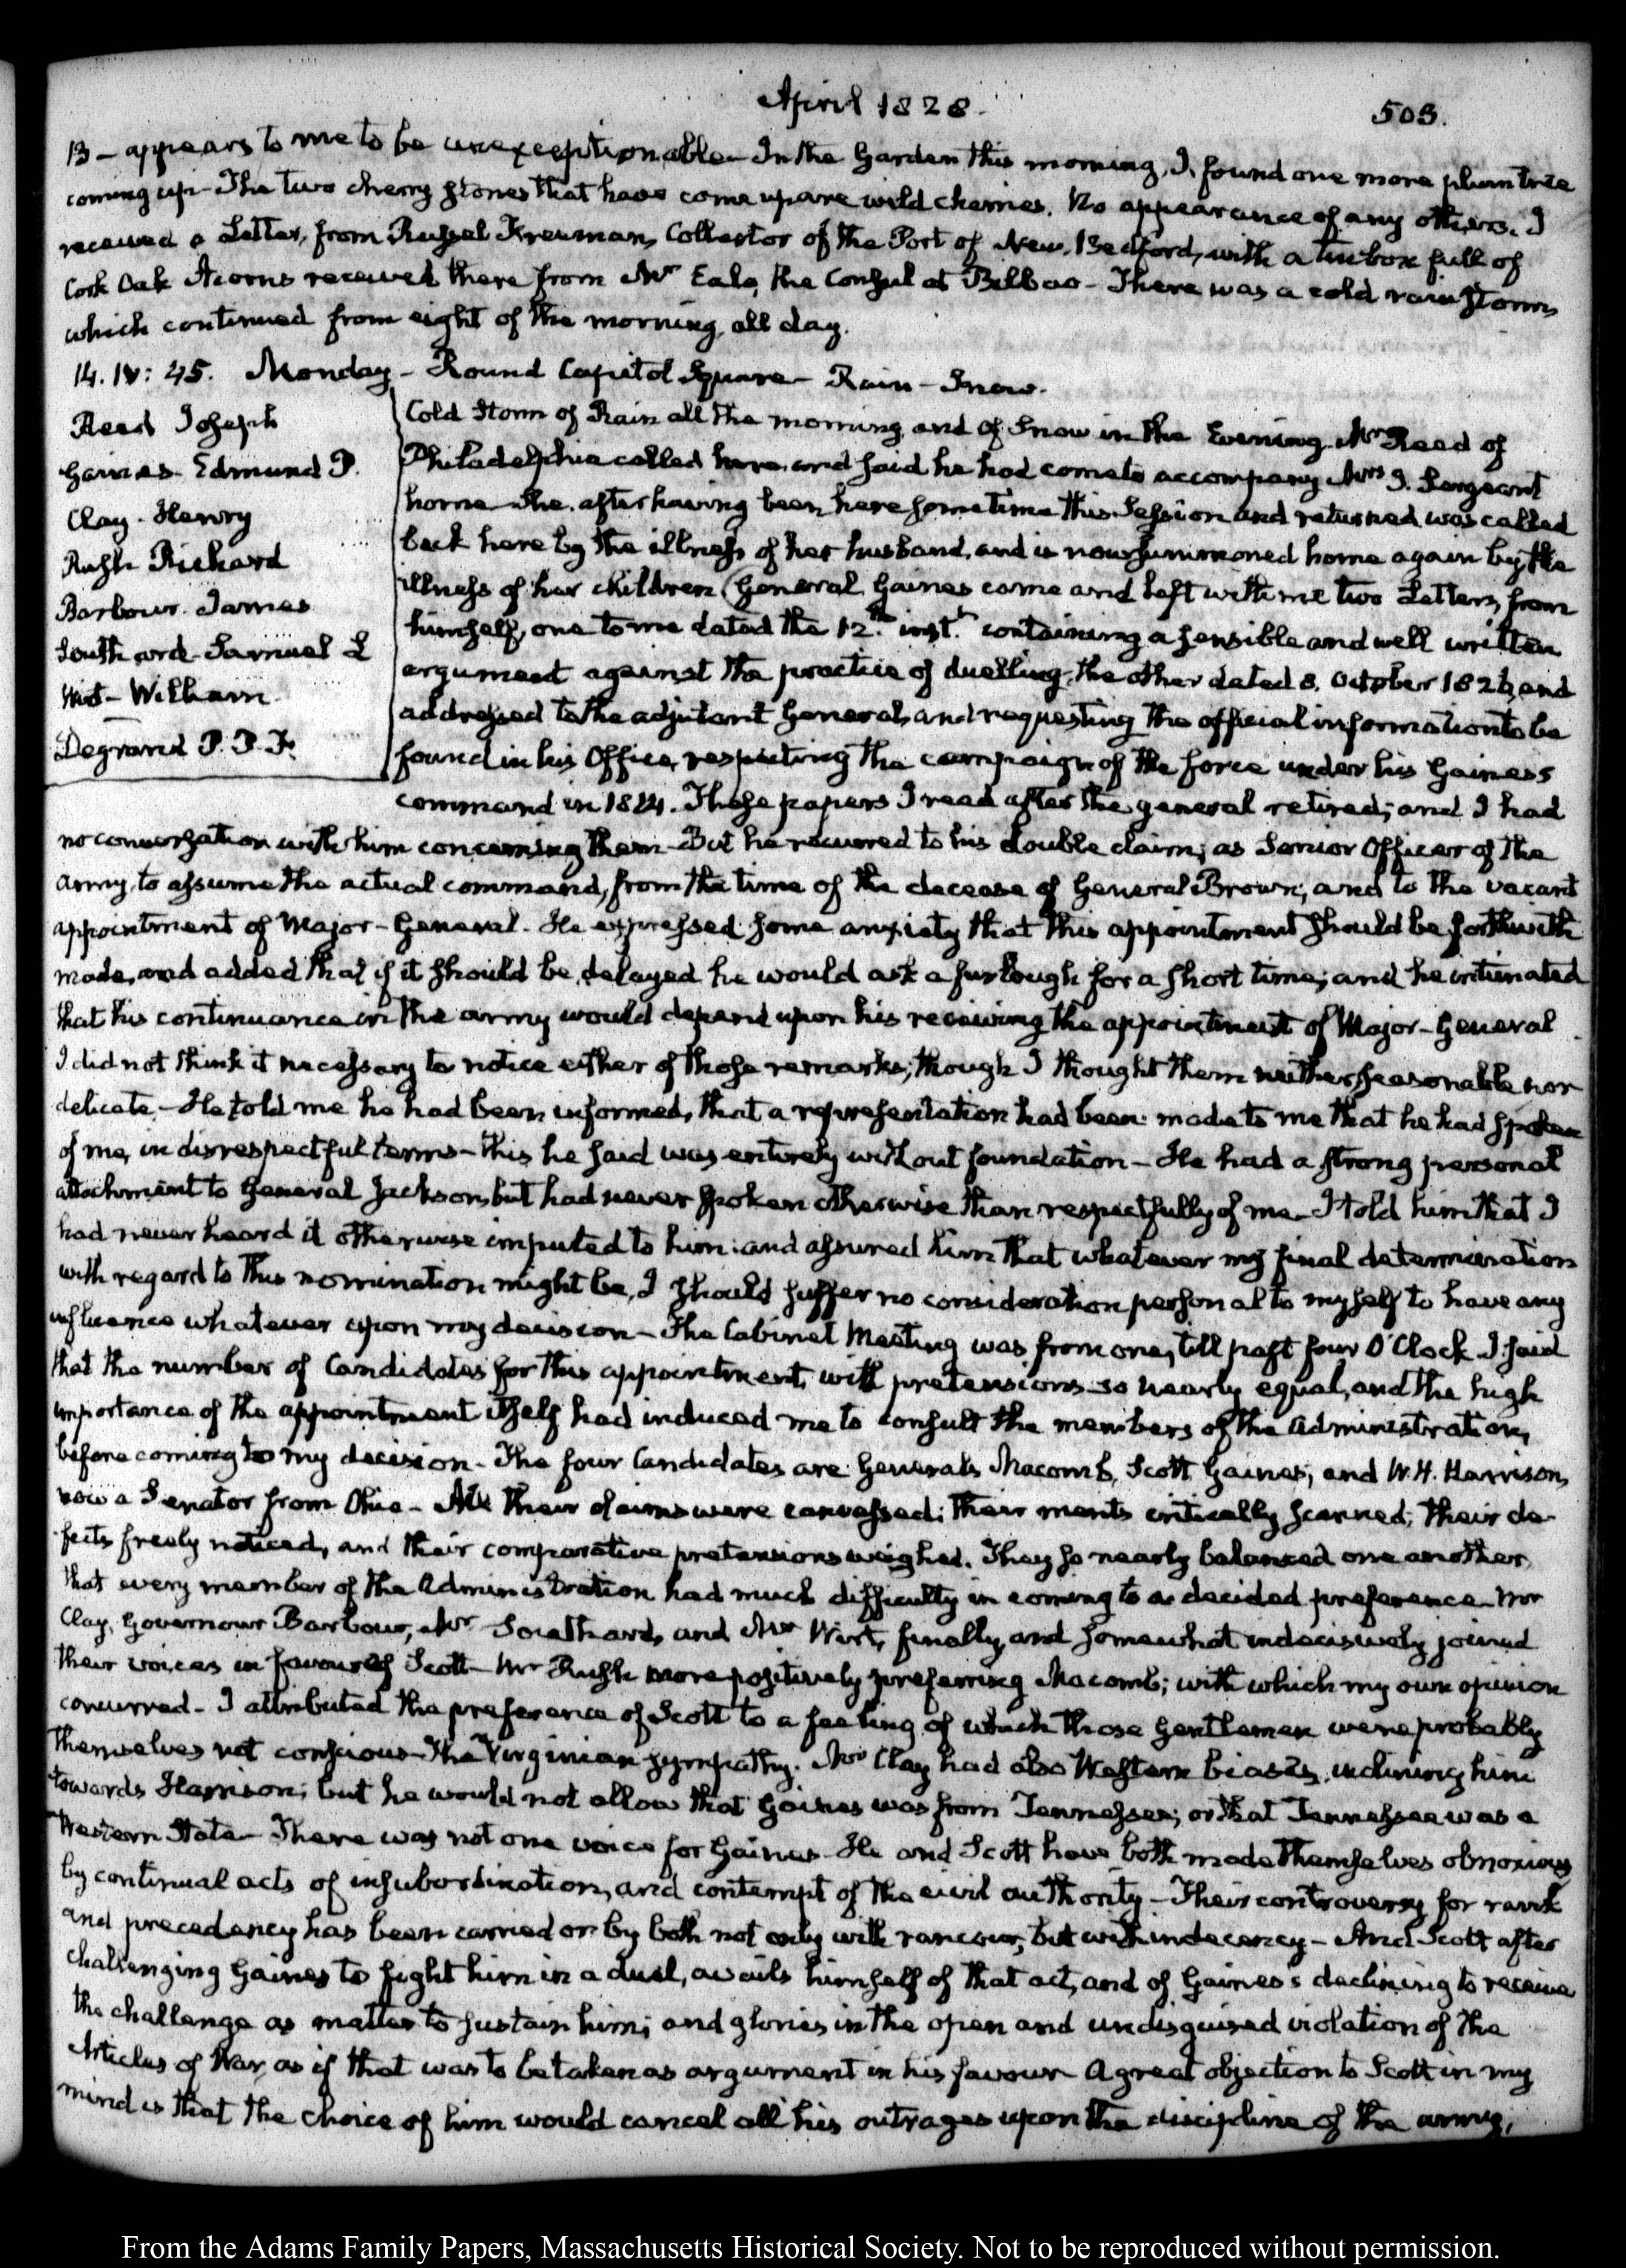 April 1828.
503.
13 - appears to me to be unexceptionable - In the Garden this morning, I found one more plum tree
coming up - The two cherry stones that have come up are wild cherries. No appearance of any others. I
received a Letter, from Russel Freeman, Collector of the Port of New-Bedford, with a tin box full of
Cork Oak Acorns received there from Mr the Consul at Bilbao - There was a cold rain storm,
which continued from eight of the morning, all day.
14. IV: 45. Monday - Round Capitol Square - Rain - Snow.
Reed Joseph
Gaines Edmund P.
Clay. Henry
Rush Richard
Barbour. James
Southard - Samuel L
Wirt - William
Degrand P. P. F.
Cold Storm of Rain all the morning, and of Snow in the Evening. Mr Reed of
Philadelphia called here and said he had come to accompany Mrs J. Sergeant
home. She, after having been here some time this Session and returned was called
back here by the illness of her husband, and is now summoned home again by the
illness of her children (General Gaines came and left with me two Letters, from
himself, one to me dated the 12th. inst.t containing a sensible and well written
argument against the practice of duelling, the other dated 8. October 1826, and
addressed to the adjutant General, and requesting the official information to be
found in his Office, respecting the campaign of the force under his Gaines's
command in 1814. These papers I read after the general retired; and I had
no conversation with him concerning them - But he recurred to his double claim; as Senior Officer of the
army, to assume the actual command, from the time of the decease of General Brown; and to the vacant
appointment of Major-General. He expressed some anxiety that this appointment should be forthwith
made, and added that if it should be delayed he would ask a furlough for a short time; and he intimated
that his continuance in the army would depend upon his receiving the appointment of Major-General
I did not think it necessary to notice either of those remarks; though I thought them neither seasonable nor
delicate - He told me he had been informed, that a representation had been made to me that he had spoken
of me, in disrespectful terms - this he said was entirely without foundation - He had a strong personal
attachment to General Jackson, but had never spoken otherwise than respectfully of me - I told him that I
had never heard it otherwise imputed to him: and assured him that whatever my final determination
with regard to this nomination might be, I should suffer no consideration personal to myself to have any
influence whatever upon my decision - The Cabinet Meeting was from one, till past four O'Clock I said
that the number of Candidates for this appointment, with pretensions so nearly equal, and the high
importance of the appointment itself had induced me to consult the members of the Administration,
before coming to my decision - The four Candidates are Generals Macomb, Scott Gaines; and W. H. Harrison,
now a Senator from Ohio - All their claims were canvassed; their merits critically scanned; their de-
fects freely noticed, and their comparative pretensions weighed. They so nearly balanced one another,
that every member of the Administration had much difficulty in coming to a decided preference - Mr
Clay, Governour Barbour, Mr Southard, and Mr Wirt, finally, and somewhat indecisively joined
their voices in favour of Scott - Mr Rush more positively preferring Macomb; with which my own opinion
concurred - I attributed the preference of Scott to a feeling of which those Gentlemen were probably
themselves not conscious - The Virginian sympathy. Mr Clay had also Western biases, inclining him
towards Harrison; but he would not allow that Gaines was from Tennessee; or that Tennessee was a
Western State - There was not one voice for Gaines - He and Scott have both made themselves obnoxious
by continual acts of insubordination, and contempt of the civil authority - Their controversy for rank
and precedency has been carried on by both not only with rancour, but with indecency - And Scott after
challenging Gaines to fight him in a duel, avails himself of that act, and of Gaines's declining to receive
the challenge as matter to sustain him; and glories in the open and undisguised violation of the
Articles of War, as if that was to be taken as argument in his favour A great objection to Scott in my
mind is that the choice of him would cancel all his outrages upon the discipline of the army,
From the Adams Family Papers, Massachusetts Historical Society. Not to be reproduced without permission.